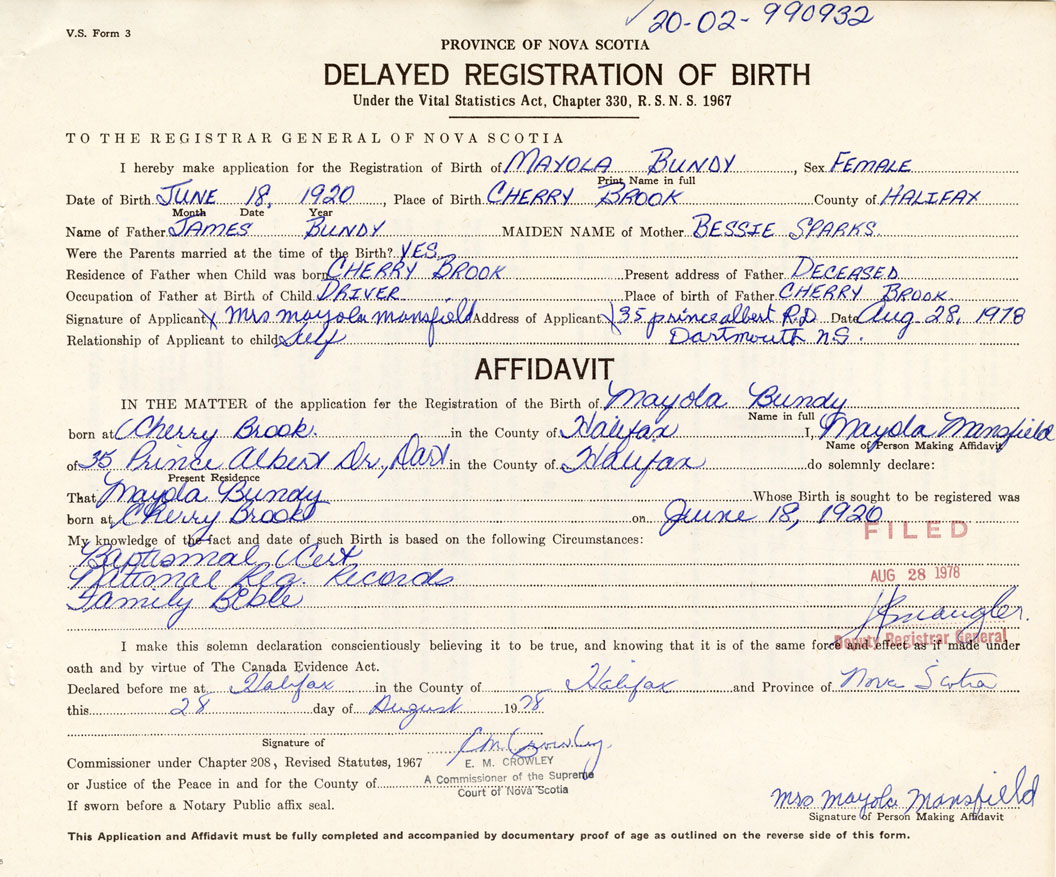 20-02-990932
V.S. Form 3
PROVINCE OF NOVA SCOTIA
DELAYED REGISTRATION OF BIRTH
Under the Vital Statistics Act, Chapter 330, R.S.N.S. 1967
TO THE REGISTRAR GENERAL OF NOVA SCOTIA
I hereby make application for the Registration of Birth of MAYOLA BUNDY, Sex FEMALE
Print Name in full
Date of Birth JUNE 18, 1920, Place of Birth CHERRY BROOK County of HALIFAX
Month Date Year
Name of Father JAMES BUNDY MAIDEN NAME of Mother BESSIE SPARKS.
Were the Parents married at the time of the Birth? YES.
Residence of Father when Child was born CHERRY BROOK Present address of Father DECEASED
Occupation of Father at Birth of Child DRIVER Place of birth of Father CHERRY BROOK
Signature of Applicant X Mrs mayola mansfield Address of Applicant X 35 prince albert R.D Date Aug 28, 1978
Relationship of Applicant to child Self Dartmouth n.S.
AFFIDAVIT
IN THE MATTER of the application for the Registration of the Birth of Mayola Bundy
Name in full
born at Cherry Brook. in the County of Halifax I, Mayola Mansfield
Name of Person Making Affidavit
of 35 Prince Albert Dr., Dart in the County of Halifax do solemnly declare:
Present Residence
That Mayola Bundy Whose Birth is sought to be registered was
born at Cherry Brook on June 18, 1920
FILED
My knowledge of the fact and date of such Birth is based on the following Circumstances:
Baptismal Cert
National Reg. Records
AUG 28 1978
Family Bible
Deputy Registrar General
I make this solemn declaration conscientiously believing it to be true, and knowing that it is of the same force and effect as if made under
oath and by virtue of The Canada Evidence Act.
Declared before me at Halifax in the County of Halifax and Province of Nova Scotia
this 28 day of August 1978
Signature of
Commissioner under Chapter 208, Revised Statutes, 1967 E. M. CROWLEY
or Justice of the Peace in and for the County of A Commissioner of the Supreme
Court of Nova Scotia
If sworn before a Notary Public affix seal.
mrs mayola Mansfield
Signature of Person Making Affidavit
This Application and Affidavit must be fully completed and accompanied by documentary proof of age as outlined on the reverse side of this form.